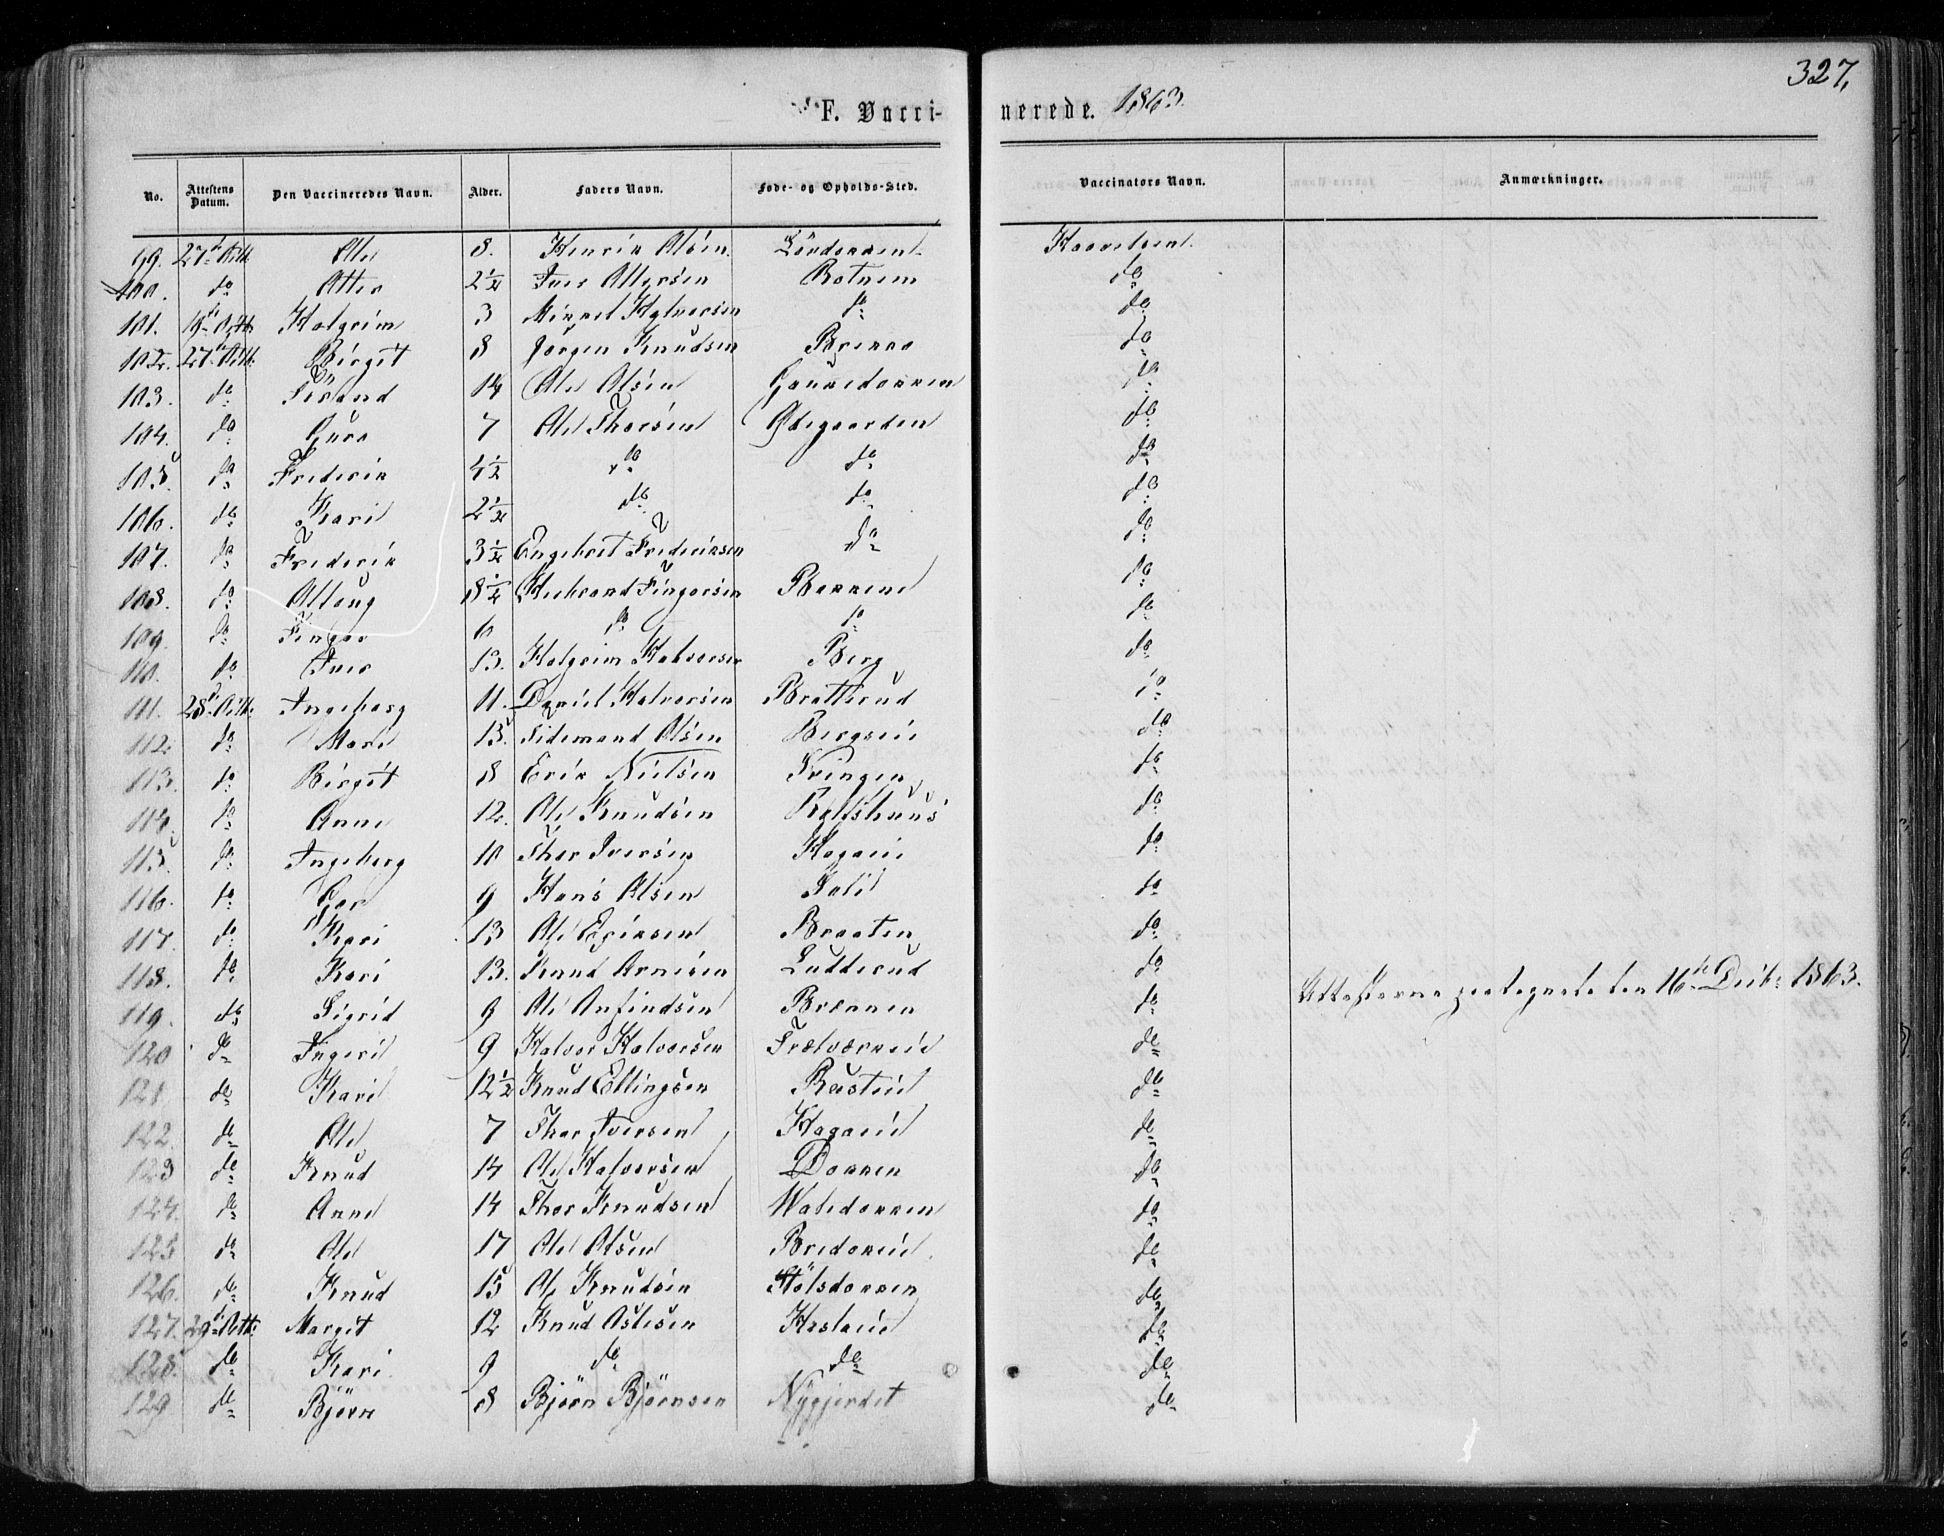 327.
F. Vacci- nerede. 1863.
No. Attestens Datum. Den Vaccineredes Navn. Alder. Faders Navn. Føde- og Opholds-Sted. Vaccinators Navn. Anmærkninger.
99. 27de Octb. Ole 8. Henrik Olsen
100. do Otter 2½ Iver Ottersen Rotnem do
101. Halgrim 3 Mikkel Halvorsen do do
102. 27de Octb. Birgit 8 Jørgen Knudsen do
103. do 14 Ole Olsen do
104. do Guro 7 Ole Thorsen Ødegaarden do
105. do Frederik 4½ do do do
106. do Kari 2½ do do do
107. do Frederik 3½ Engebret Frederiksen do do
108. do Allaug 8½ Herbrand Fingarsen do
109. do Fingar 6 do do do
110. do Iver 13. Halgrim Halvorsen Berg do
111. 28de Octb. Ingeborg 11. Daniel Halvorsen Bratterud do
112. do Mari 15. Tidemand Olsen do
113. do Birgit 8 Erik Nielsen do
114. do Anne 12. Ole Knudsen Rolfshuus do
115. do Ingeborg 10 Thor Iversen Hagaeie do
116. do 9 Hans Olsen do
117. do Kari 13 Ole Eriksen Braaten do
118. do Kari 13. Knud Arnesen Lutterud do
119. do Sigrid 9 Ole Anfindsen Brennen do Attesterne paategnede den 16de Decb. 1863.
120 do Ingeri 9 Halvor Halvorsen do
121. do Kari 12½ Knud Ellingsen do
122. do Ole 7 Thor Iversen Hagaeie do
123 do Knud 14 Ole Halvorsen Dokken do
124. do Anne 14 Thor Knudsen do
125 do Ole 17 Ole Olsen do
126. do Knud 15 Ole Knudsen Stølsdokken do
127. 29de Octb. Margit 12 Knud Aslesen do
128. do Kari 9 do do do
129. do Bjørn 8 Bjørn Bjørnsen Nygjerdet do